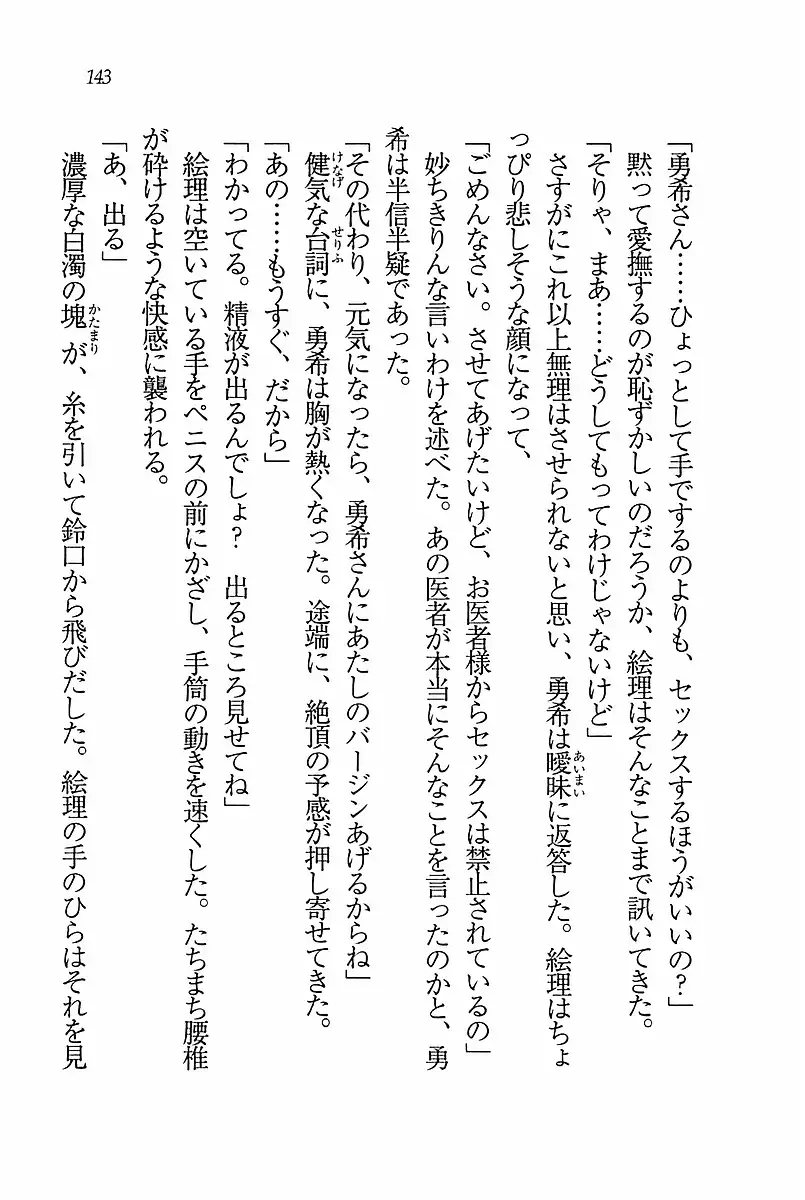 143
「勇希さん……ひょっとして手でするのよりも、セックスするほうがいいの？」
黙って愛撫するのが恥ずかしいのだろうか、絵理はそんなことまで訊いてきた。
「そりゃ、まあ……どうしてもってわけじゃないけど」
さすがにこれ以上無理はさせられないと思い、勇希は曖昧に返答した。絵理はちょ
っぴり悲しそうな顔になって、
「ごめんなさい。させてあげたいけど、お医者様からセックスは禁止されているの」
妙ちきりんな言いわけを述べた。あの医者が本当にそんなことを言ったのかと、勇
希は半信半疑であった。
「その代わり、元気になったら、勇希さんにあたしのバージンあげるからね」
健気な台詞に、勇希は胸が熱くなった。途端に、絶頂の予感が押し寄せてきた。
「あの……もうすぐ、だから」
「わかってる。精液が出るんでしょ？　出るところ見せてね」
絵理は空いている手をペニスの前にかざし、手筒の動きを速くした。たちまち腰椎
が砕けるような快感に襲われる。
「あ、出る」
濃厚な白濁の塊が、糸を引いて鈴口から飛びだした。絵理の手のひらはそれを見